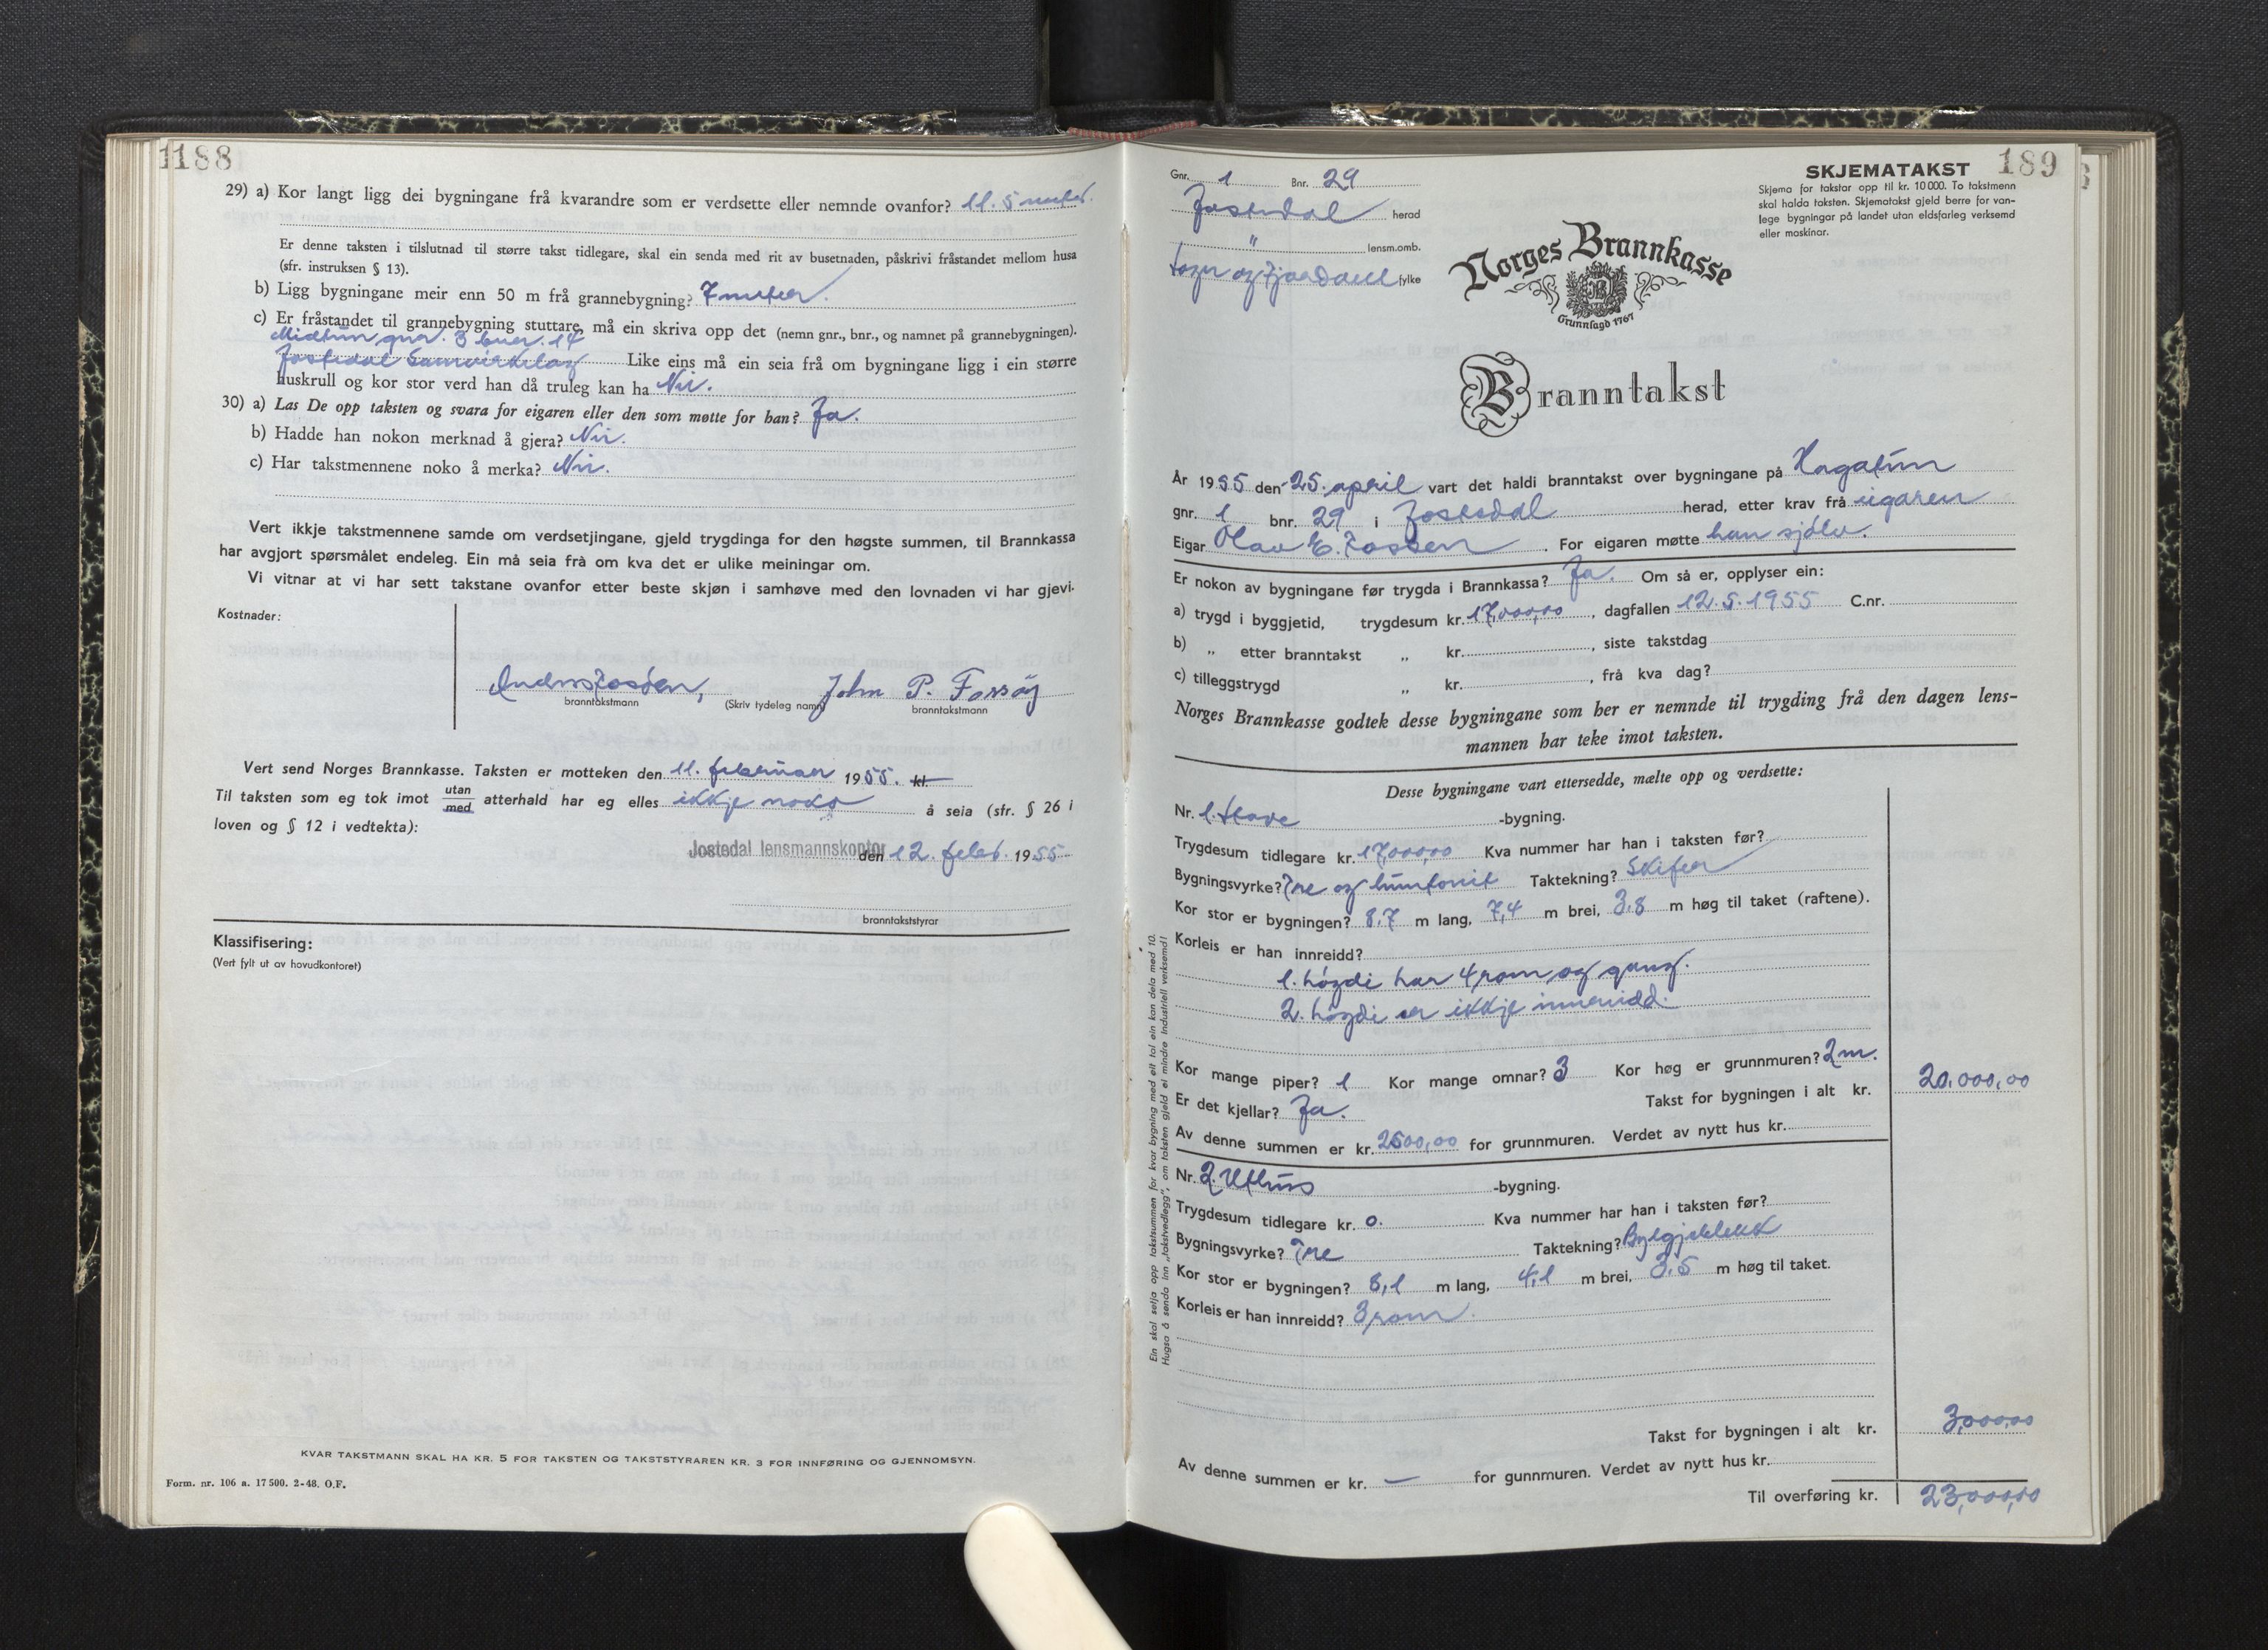 1188
29) a) Kor langt ligg dei bygningane frå kvarandre som er verdsette eller nemnde ovanfor? 11.5 meter.
Er denne taksten i tilslutnad til større takst tidlegare, skal ein senda med rit av busetnaden, påskrivi fråstandet mellom husa
(sfr. instruksen § 13).
b) Ligg bygningane meir enn 50 m frå grannebygning? 7 meter.
c) Er fråstandet til grannebygning stuttare, må ein skriva opp det (nemn gnr., bnr., og namnet på grannebygningen).
Midtun gnr. 3 bnr. 14
Jostedal Samvirkelag Like eins må ein seia frå om bygningane ligg i ein større
huskrull og kor stor verd han då truleg kan ha Nei.
30) a) Las De opp taksten og svara for eigaren eller den som møtte for han? Ja.
b) Hadde han nokon merknad å gjera? Nei.
c) Har takstmennene noko å merka? Nei.
Vert ikkje takstmennene samde om verdsetjingane, gjeld trygdinga for den høgste summen, til Brannkassa
har avgjort spørsmålet endeleg. Ein må seia frå om kva det er ulike meiningar om.
Vi vitnar at vi har sett takstane ovanfor etter beste skjøn i samhøve med den lovnaden vi har gjevi.
Kostnader:
John P. Fossøy
branntakstmann (Skriv tydeleg namn) branntakstmann
Vert send Norges Brannkasse. Taksten er motteken den 11. februar 1955. kl.
Til taksten som eg tok imot utan/med atterhald har eg elles ikkje noko å seia (sfr. § 26 i
loven og § 12 i vedtekta):
Jostedal lensmannskontor den 12. febr. 1955
branntakststyrar
Klassifisering:
(Vert fylt ut av hovudkontoret)
KVAR TAKSTMANN SKAL HA KR. 5 FOR TAKSTEN OG TAKSTSTYRAREN KR. 3 FOR INNFØRING OG GJENNOMSYN.
Form. nr. 106 a. 17 500. 2-48. O.F.
189
SKJEMATAKST
Skjema for takstar opp til kr. 10 000. To takstmenn
skal halda taksten. Skjematakst gjeld berre for van-
lege bygningar på landet utan eldsfarleg verksemd
eller maskinar.
Gnr. 1 Bnr. 29
Jostedal herad
" lensm.omb.
Sogn og Fjordane fylke
Norges Brannkasse
Grunnlagd 1767
Branntakst
År 1955 den 25. april vart det haldi branntakst over bygningane på Hagatun
gnr. 1 bnr. 29 i Jostedal herad, etter krav frå eigaren
Eigar Olav E. Fossen. For eigaren møtte han sjølv.
Er nokon av bygningane før trygda i Brannkassa? Ja. Om så er, opplyser ein:
a) trygd i byggjetid, trygdesum kr. 17,000,00, dagfallen 12.5.1955 C.nr.
b) „ etter branntakst „ kr. , siste takstdag
c) tilleggstrygd „ kr. , frå kva dag?
Norges Brannkasse godtek desse bygningane som her er nemnde til trygding frå den dagen lens-
mannen har teke imot taksten.
Desse bygningane vart ettersedde, mælte opp og verdsette:
Nr. 1. Stove -bygning.
Trygdesum tidlegare kr. 17,000,00 Kva nummer har han i taksten før?
Bygningsvyrke? Tre og huntonit Taktekning? Skifer
Kor stor er bygningen? 8.7 m lang, 7,4 m brei, 3.8 m høg til taket (raftene).
Korleis er han innreidd?
1. høgdi har 4 rom og gang.
2. høgdi er ikkje innreidd.
Kor mange piper? 1 Kor mange omnar? 3 Kor høg er grunnmuren? 2 m.
Er det kjellar? Ja. Takst for bygningen i alt kr. 20.000,00
Av denne summen er kr. 2500,00 for grunnmuren. Verdet av nytt hus kr.
Nr. 2 Uthus -bygning.
Trygdesum tidlegare kr. 0. Kva nummer har han i taksten før?
Bygningsvyrke? Tre Taktekning? Bylgjeblekk
Kor stor er bygningen? 8,1 m lang, 4,1 m brei, 3.5 m høg til taket.
Korleis er han innreidd? 3 rom.
Takst for bygningen i alt kr. 3,000,00
Av denne summen er kr. — for gunnmuren. Verdet av nytt hus kr.
Til overføring kr. 23,000,00
Ein skal setja opp takstsummen for kvar bygning med eit tal ein kan dela med 10.
Hugsa å senda inn „takstvedlegg", om taksten gjeld ei mindre industriell verksemd!